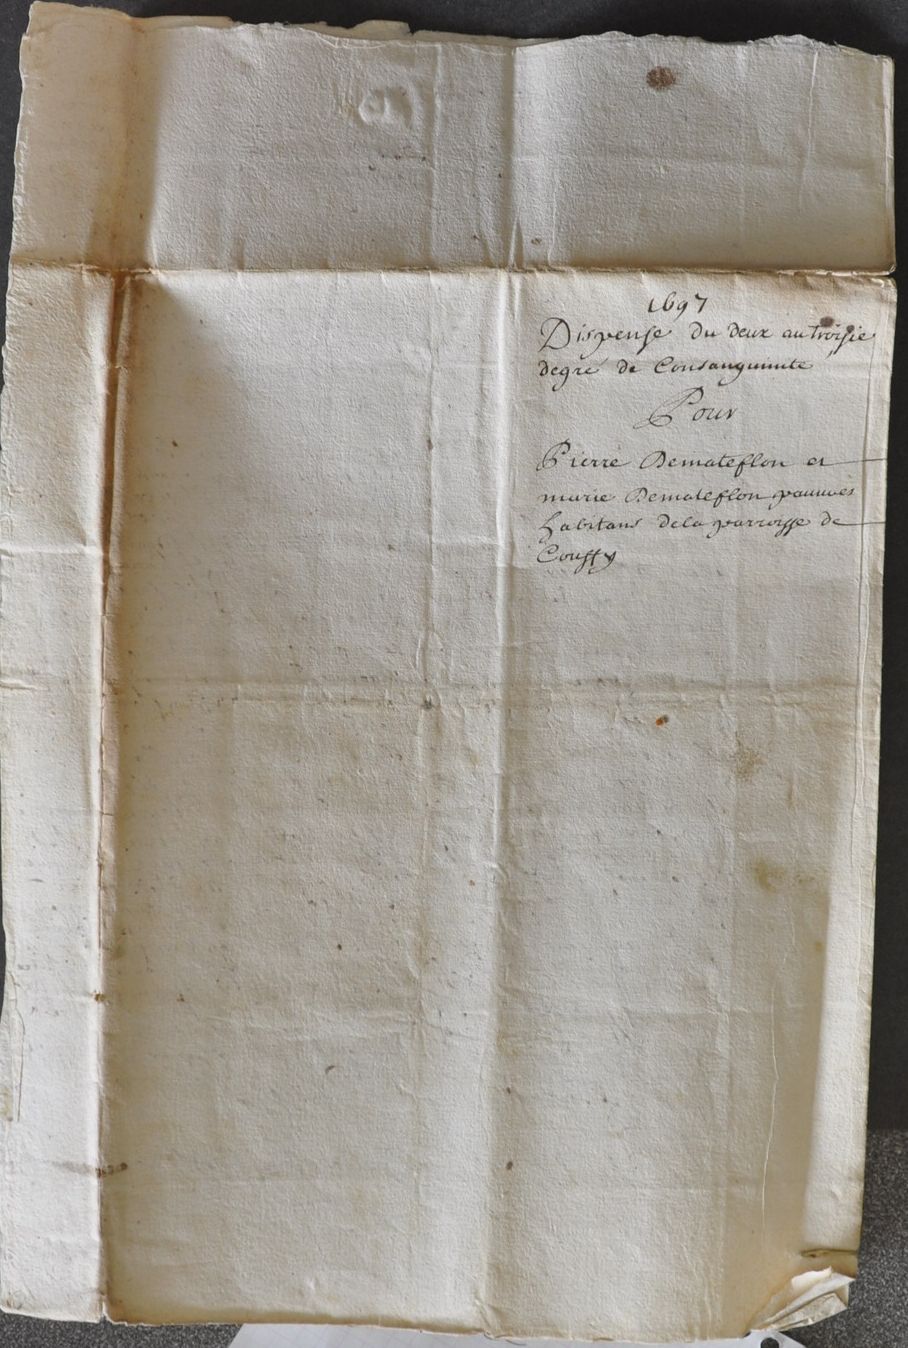 1697
Dispense du deux au troisie
degré de Consanguinite
Pour
Pierre Demateflon et
marie Demateflon pauures
habitans dela parroisse de
Couffy